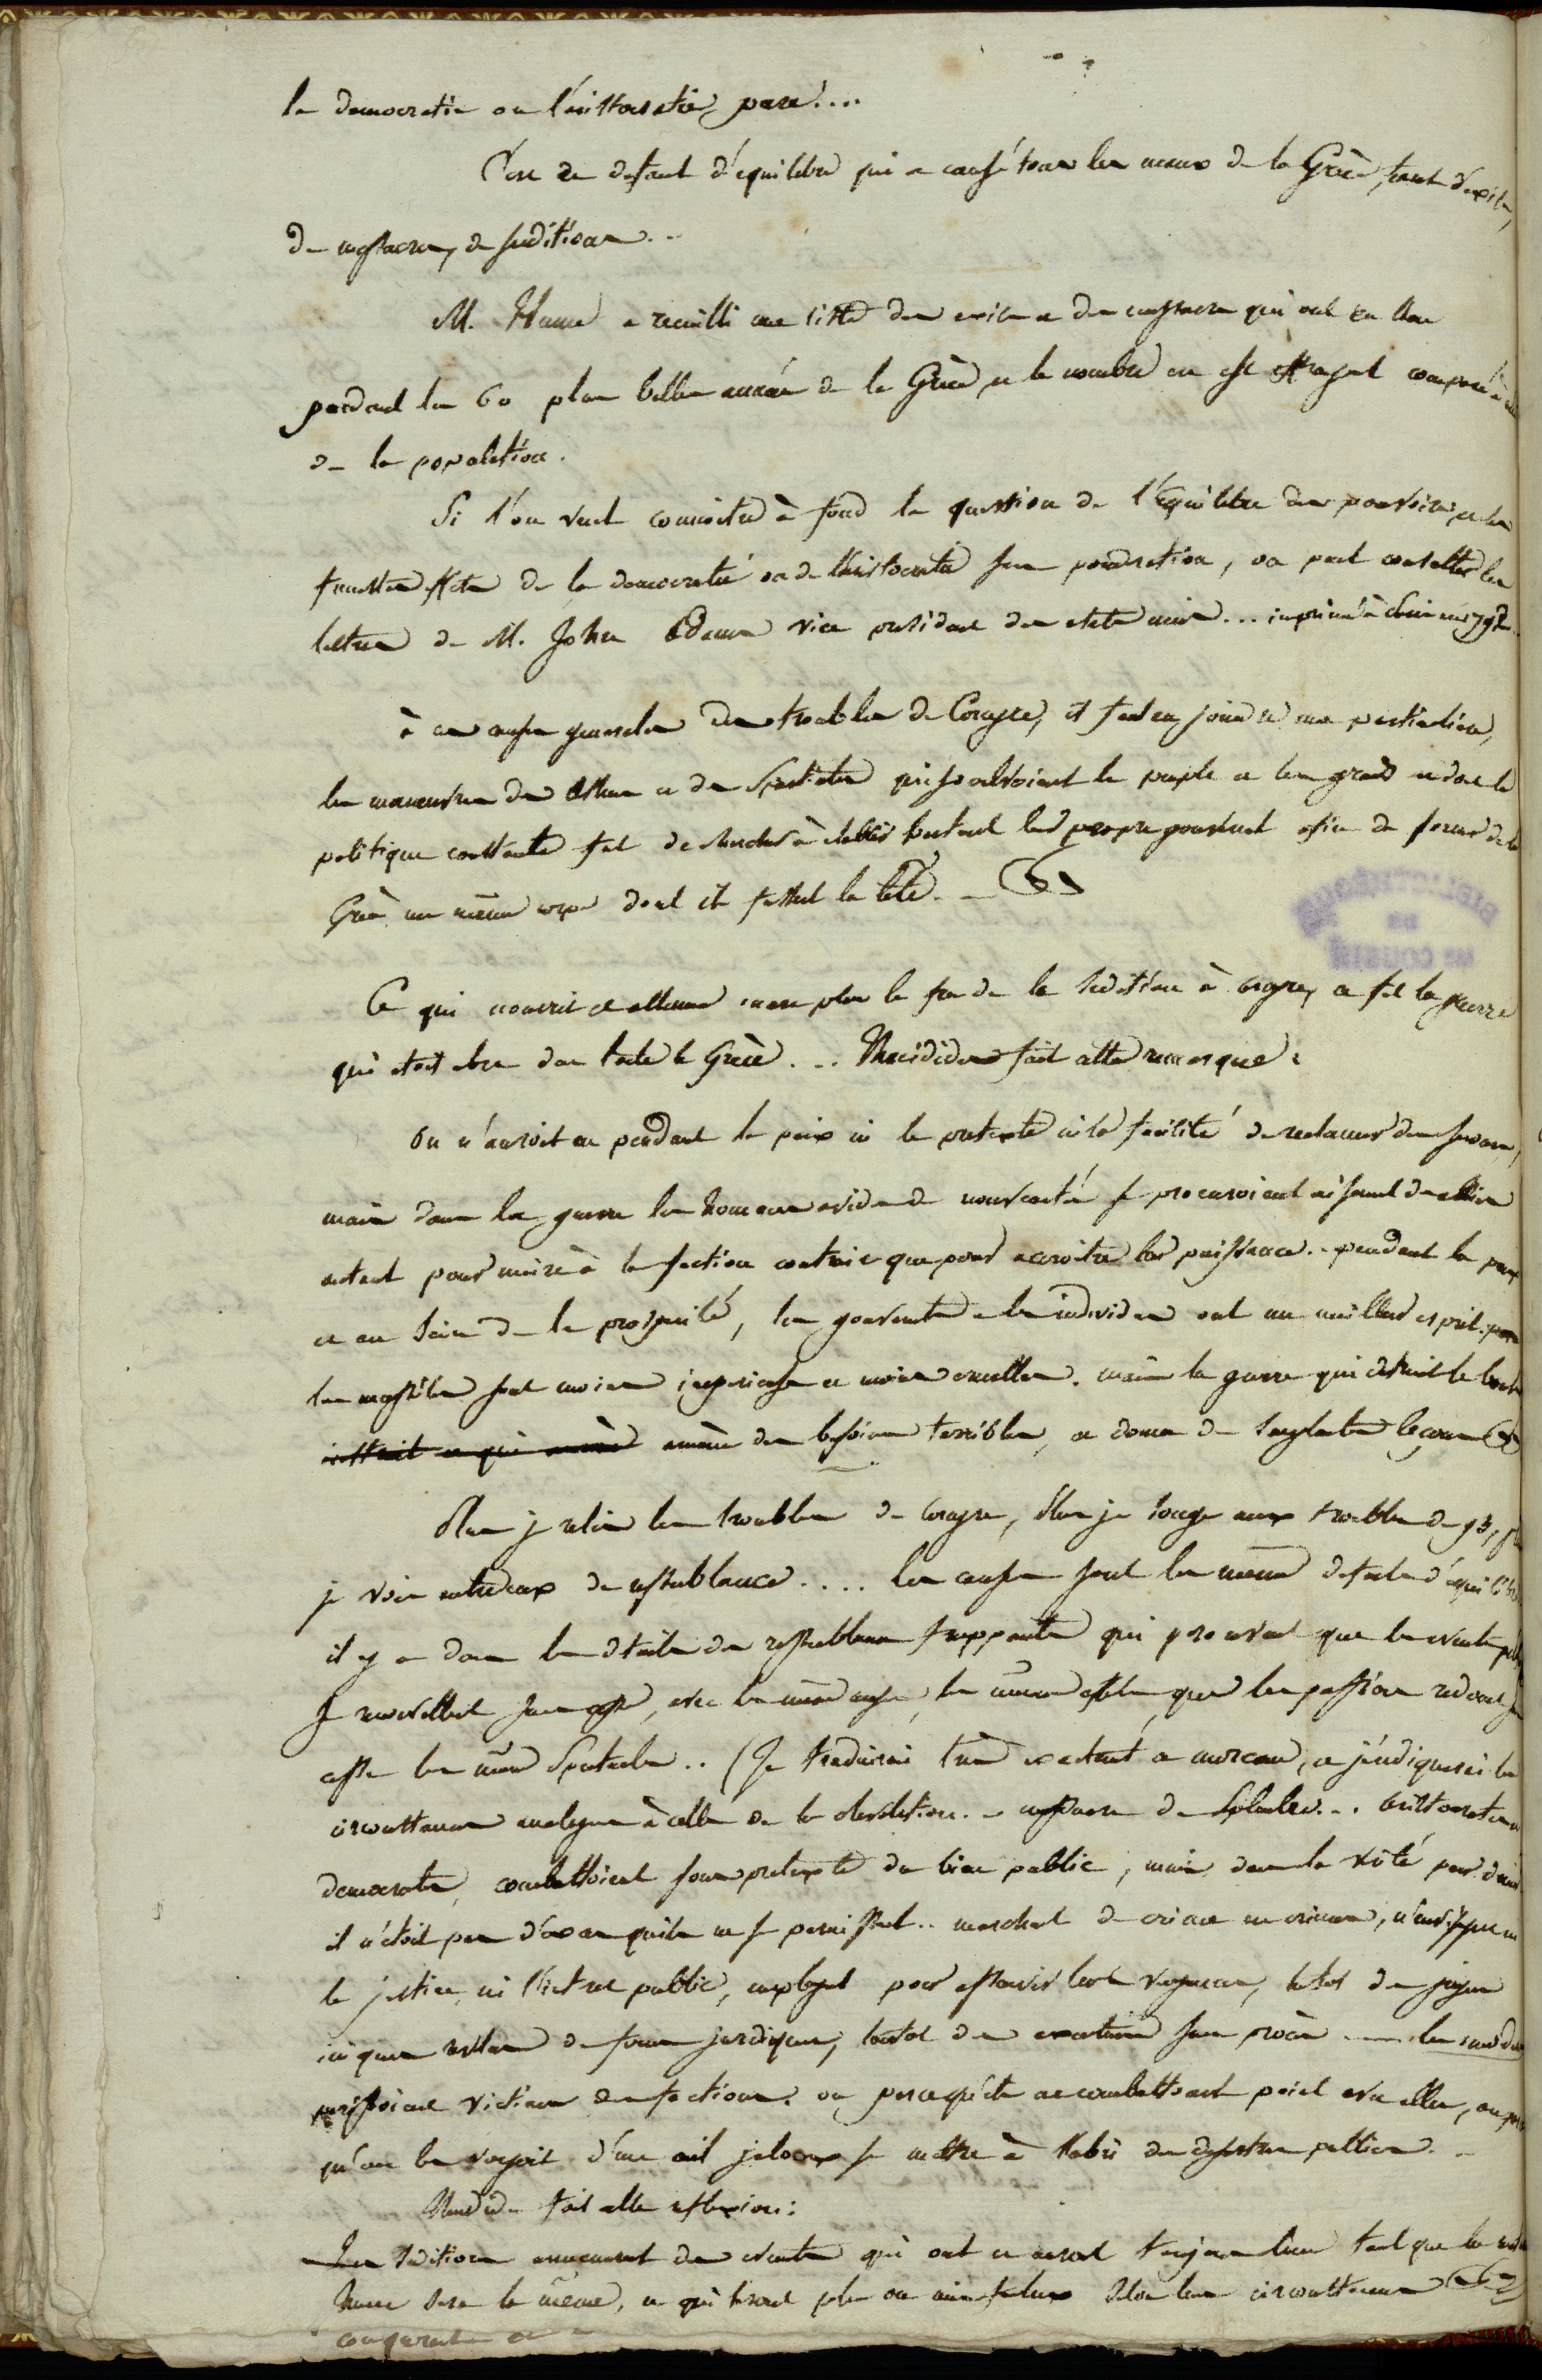 la democratie ou l'aristocratie pure....
C'est ce defaut d'equilibre qui a causé tous les maux de la Grèce, tant d'exils,
de massacres, de seditions..
M. Hume a recueilli une liste des exils et des massacres qui ont eu lieu
pendant les 60 plus belles années de la Grèce, et le nombre en est effrayant comparé à
de la population.
Si l'on veut connoitre à fond la question de l'Equilibre des pouvoirs, et les
funestes effets de la democratie ou de l'aristocratie sans ponderation, on peut consulter les
lettres de M. John Adams vice president des etats unis... imprimé à 1792.
à ces causes generales des troubles de Corcyre, il faut en joindre une particuliere,
les manœuvres des Athen et des Spartiates qui soulevoient le peuple et les grands et dont la
politique constante fut de chercher à etablir partout leur propre gouvernet afin de former de la
Grèce un même corps dont ils fussent la tête. -
Ce qui nourrit et alluma encore plus le feu de la sedition à Corcyre, ce fut la guerre
qui etoit alors dans toute la Grèce. .. Thucidides fait cette remarque :
On n'auroit eu pendant la paix ni le pretexte ni la facilité de reclamer des secours,
mais dans la guerre les hommes avides de nouveautés se procuroient aisement des alliés
autant pour nuire à la faction contraire que pour accroitre leur puissance. - pendant la paix
et au sein de la prosperité, les gouvernts et les individus ont un meilleur esprit.
les necessités sont moins imperieuses et moins cruelles. mais la guerre qui detruit le
amène des besoins terribles, et donne de sanglantes leçons
Plus je relis les troubles de Corcyre, plus je songe aux troubles de 93,
je vois entre eux de ressemblance.... les causes sont les mêmes defaut d'equilibre
il y a dans les details des ressemblances frappantes qui prouvent que les evenets
se renouvellent sans cesse, avec les mêmes causes, les mêmes effets, que les passions redonnent sans
cesse les mêmes spectacles.. (Je traduirai très exactemt ce morceau, et j'indiquerai les
circonstances analogues à celles de la revolution. - massacres de septembre... Aristocrates et
democrates, combattoient sous pretexte du bien public, mais dans la vérité pour
il n'etoit pas d'exces qu'ils ne se permissent.. marchant de crimes en crimes, n'envisageant ni
la justice, ni l'interet public, employant pour assouvir leurs vengeances, tantot des juges
iniques revetus de formes juridiques, tantot des executions sans procès -
perissoient victimes des factions. ou parcequ'ils ne combattoient point avec elles, ou
qu'on les voyoit d'un œil jaloux se mettre à l'abri des desastres publics. -
Thucidide fait cette reflexion :
Les seditions amenerent des evenets qui ont et auront toujours lieu tant que la nature
hume sera la même, et qui seront plus ou moins facheux selon les circonstances